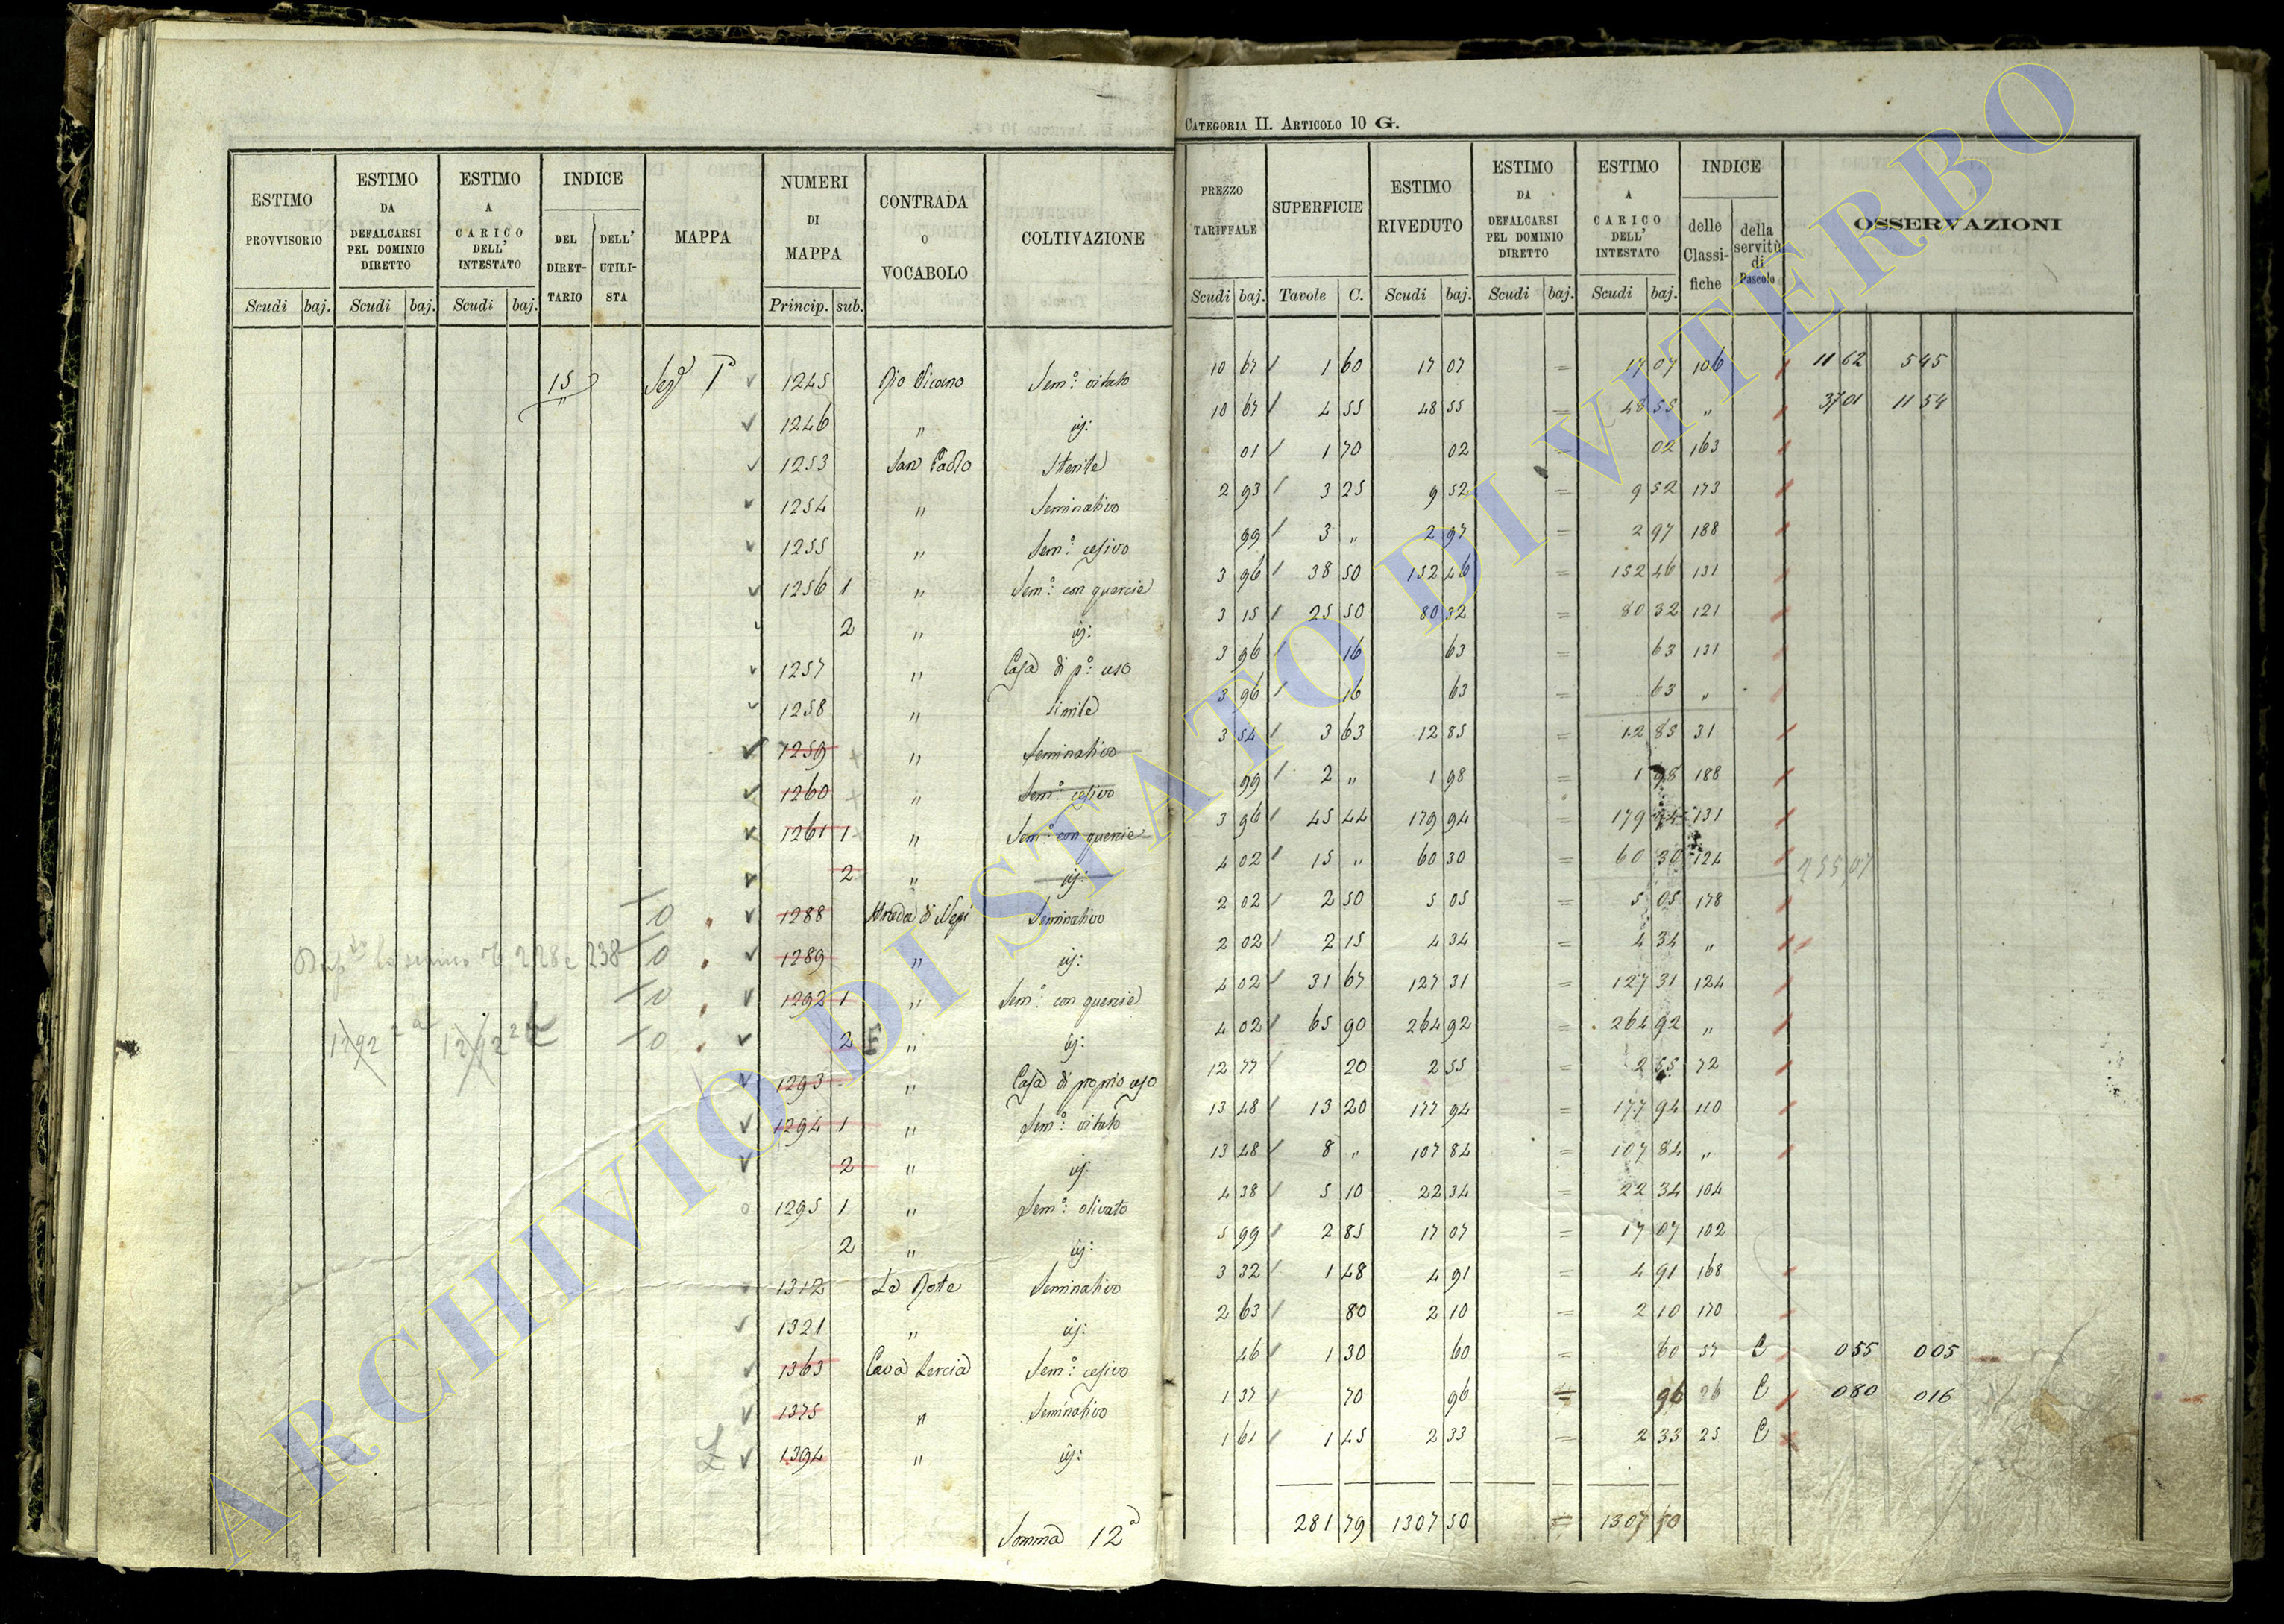 CATEGORIA II. ARTICOLO 10 G.
ESTIMO PROVVISORIO | ESTIMO DA DEFALCARSI PEL DOMINIO DIRETTO | ESTIMO A CARICO DELL' INTESTATO | INDICE DEL DIRETTARIO | DELL' UTILISTA | MAPPA | NUMERI DI MAPPA | CONTRADA O VOCABOLO | COLTIVAZIONE | PREZZO TARIFFALE | SUPERFICIE | ESTIMO RIVEDUTO | ESTIMO DA DEFALCARSI PEL DOMINIO DIRETTO | ESTIMO A CARICO DELL' INTESTATO | INDICE delle Classifiche | della servitù di Pascolo | OSSERVAZIONI
Scudi baj. | Scudi baj. | Scudi baj. | Princip. sub. | Scudi baj. | Tavole C. | Scudi baj. | Scudi baj. | Scudi baj.
15 1245 Sem.º vitato 10 67 1 60 17 07 = 17 07 106 11 62 5 45
1246 " 10 67 4 55 48 55 = 48 55 " 37 01 11 54
1253 San Paolo Sterile 01 1 70 02 = 02 163
1254 " Seminativo 2 93 3 25 9 52 = 9 52 173
1255 " Sem.º cesivo 99 3 " 2 97 = 2 97 188
1256 1 " Sem.º con quercie 3 96 38 50 152 46 = 152 46 131
2 " 3 15 25 50 80 32 = 80 32 121
1257 " Casa di p.º uso 3 96 16 63 = 63 131
1258 " simile 3 96 16 63 = 63 "
1259 " Seminativo 3 54 3 63 12 85 = 12 85 31
1260 " Sem.º cesivo 99 2 " 1 98 = 1 98 188
1261 1 " Sem.º con quercie 3 96 45 44 179 94 = 179 94 131
2 " 4 02 15 " 60 30 = 60 30 124 255,07
1288 Strada di Nepi Seminativo 2 02 2 50 5 05 = 5 05 178
228 e 238 1289 " 2 02 2 15 4 34 = 4 34 "
1292 1 " Sem.º con quercie 4 02 31 67 127 31 = 127 31 124
1292 2 1292 2 2 " 4 02 65 90 264 92 = 264 92 "
1293 " Casa di proprio uso 12 77 20 2 55 = 2 55 72
1294 1 " Sem.º vitato 13 48 13 20 177 94 = 177 94 110
2 " 13 48 8 " 107 84 = 107 84 "
1295 1 " Sem.º olivato 4 38 5 10 22 34 = 22 34 104
2 " 5 99 2 85 17 07 = 17 07 102
1312 Le Rote Seminativo 3 32 1 48 4 91 = 4 91 168
1321 " 2 63 80 2 10 = 2 10 170
1363 Cava Lercia Sem.º cesivo 46 1 30 60 = 60 57 C 0 55 0 05
1375 " Seminativo 1 37 70 96 = 96 26 C 0 80 0 16
1394 " 1 61 1 45 2 33 = 2 33 25 C
Somma 12ª 281 79 1307 50 = 1307 50
ARCHIVIO DI STATO DI VITERBO